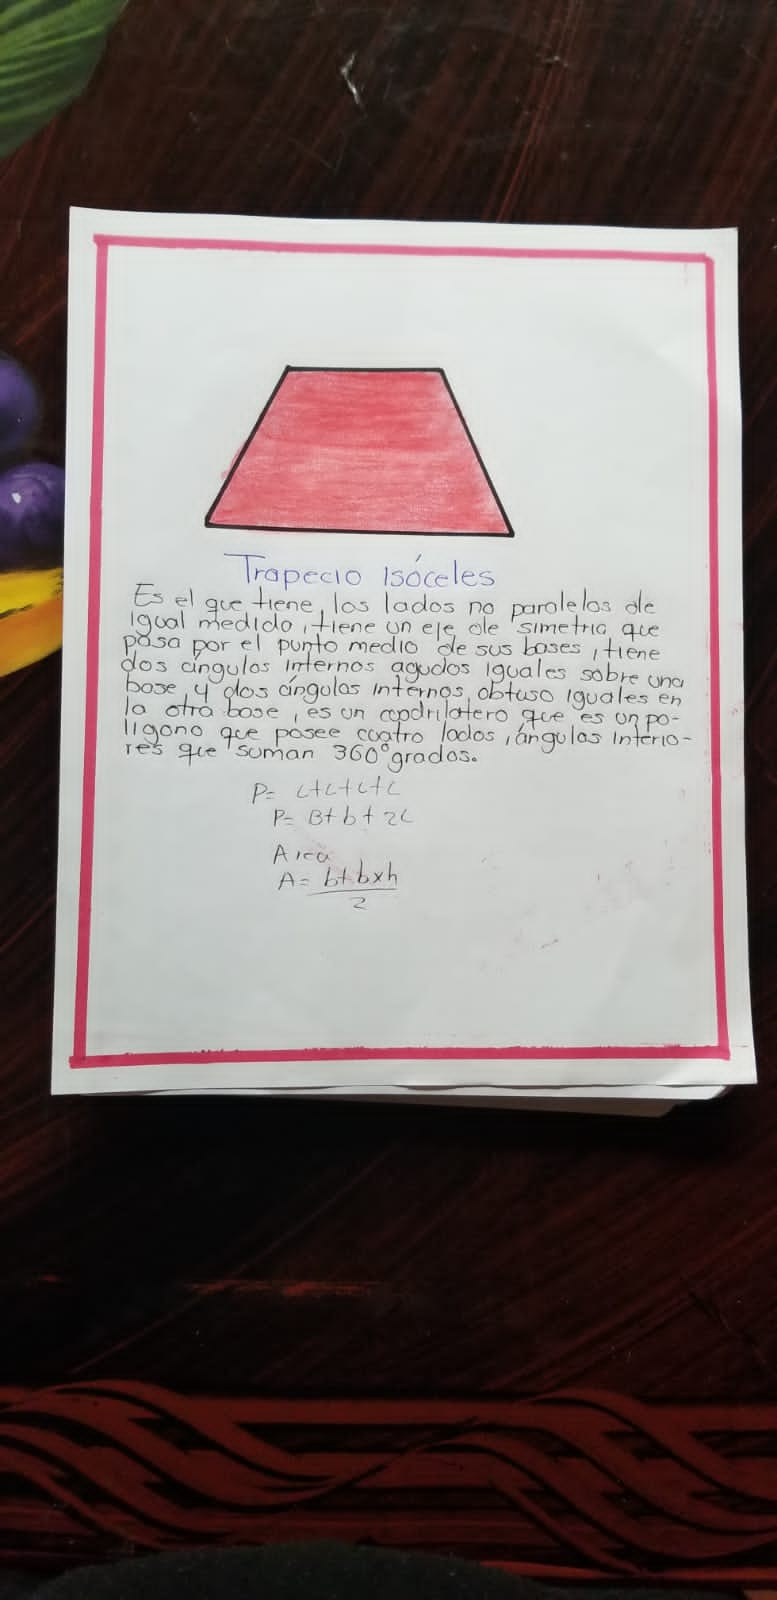 Trapecio Isóceles
Es el que tiene los lados no paralelos de
igual medida, tiene un eje de simetria que
pasa por el punto medio de sus bases, tiene
dos ángulos internos agudos iguales sobre una
base, y dos ángulos internos obtuso iguales en
la otra base, es un cuadrilatero que es un po-
ligono que posee cuatro lados, ángulos interio-
res que suman 360° grados.
P= L+L+L+L
P= B+b+2L
Area
A= b+bxh
2